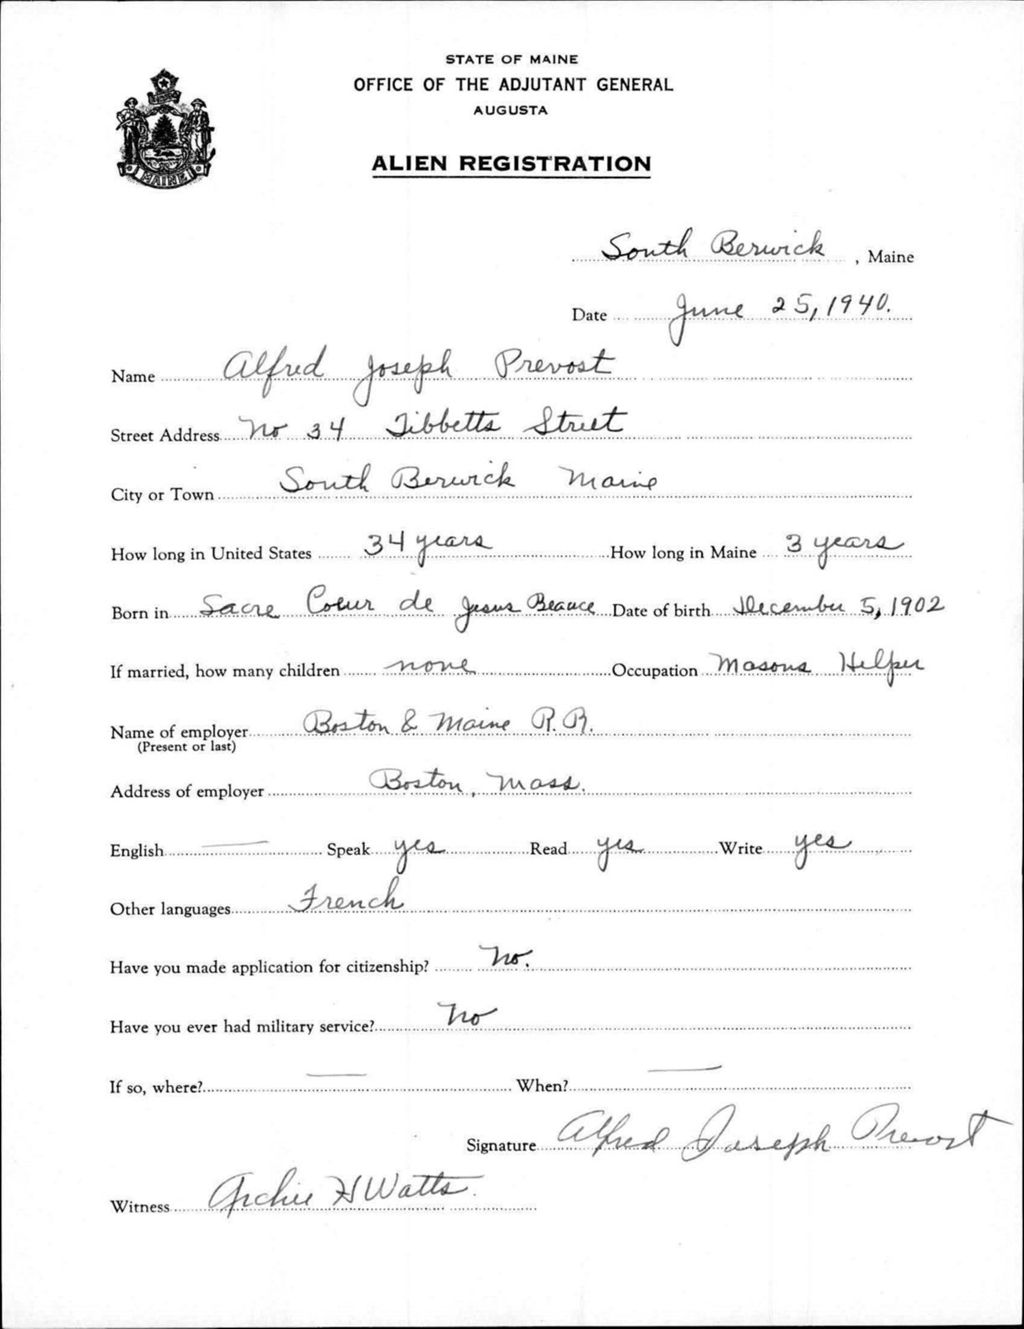 STATE OF MAINE
OFFICE OF THE ADJUTANT GENERAL
AUGUSTA
ALIEN REGISTRATION
MAINE
South Berwick, Maine
Date June 25, 1940.
Name Alfred Joseph Prevost
Street Address No 34 Tibbetts Street
City or Town South Berwick Maine
How long in United States 34 years How long in Maine 3 years
Born in Sacre Coeur de Jesus Beauce Date of birth December 5, 1902
If married, how many children none Occupation Masons Helper
Name of employer Boston & Maine R.R.
(Present or last)
Address of employer Boston, Mass.
English — Speak yes Read yes Write yes
Other languages French
Have you made application for citizenship? No.
Have you ever had military service? No
If so, where? — When? —
Signature Alfred Joseph Prevost
Witness Archie H Watts.